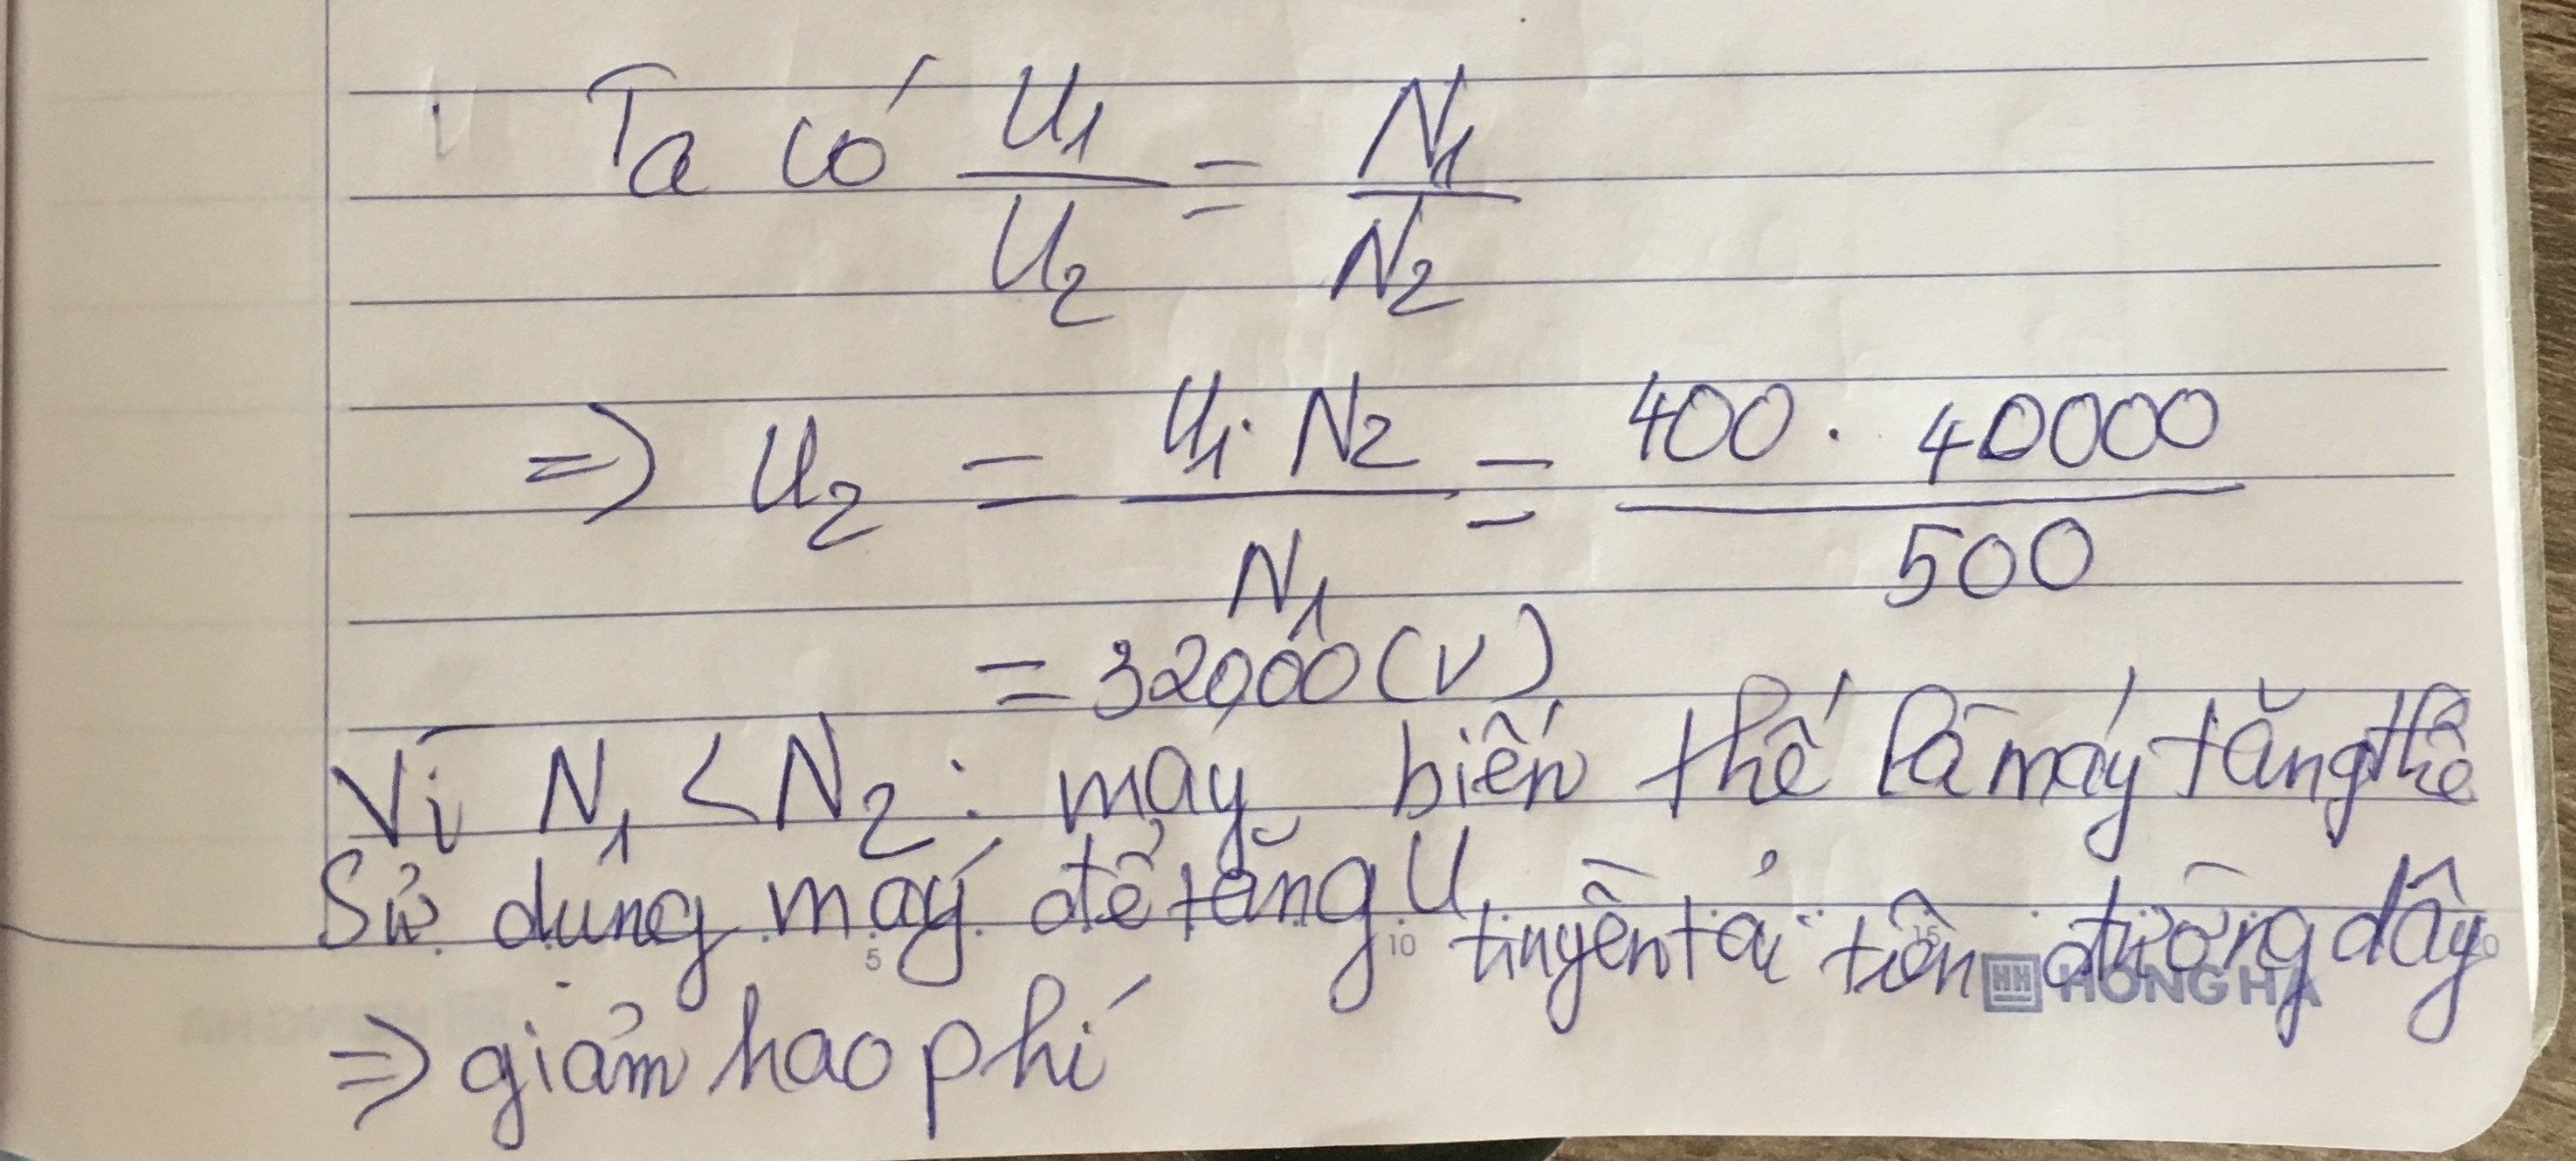 Ta có U1/U2 = N1/N2
=> U2 = U1. N2/N1 = 400 . 40000/500
= 32000 (V)
Vì N1 < N2 : máy biến thế là máy tăng thế
Sử dụng máy để tăng U truyền tải trên đường dây
=> giảm hao phí
5 10 15 20
HONG HA